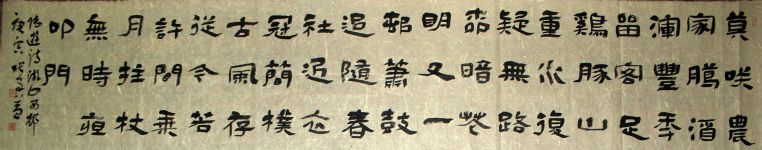 莫咲農
家臘酒
渾豐秊
留客足
鷄豚山
重水復
疑無路
桺暗花
明又一
邨蕭鼓
追隨春
社近衣
冠簡樸
古風存
從今若
許閒乘
月拄杖
無時夜
叩門
陸游詩游山西邨
庚寅